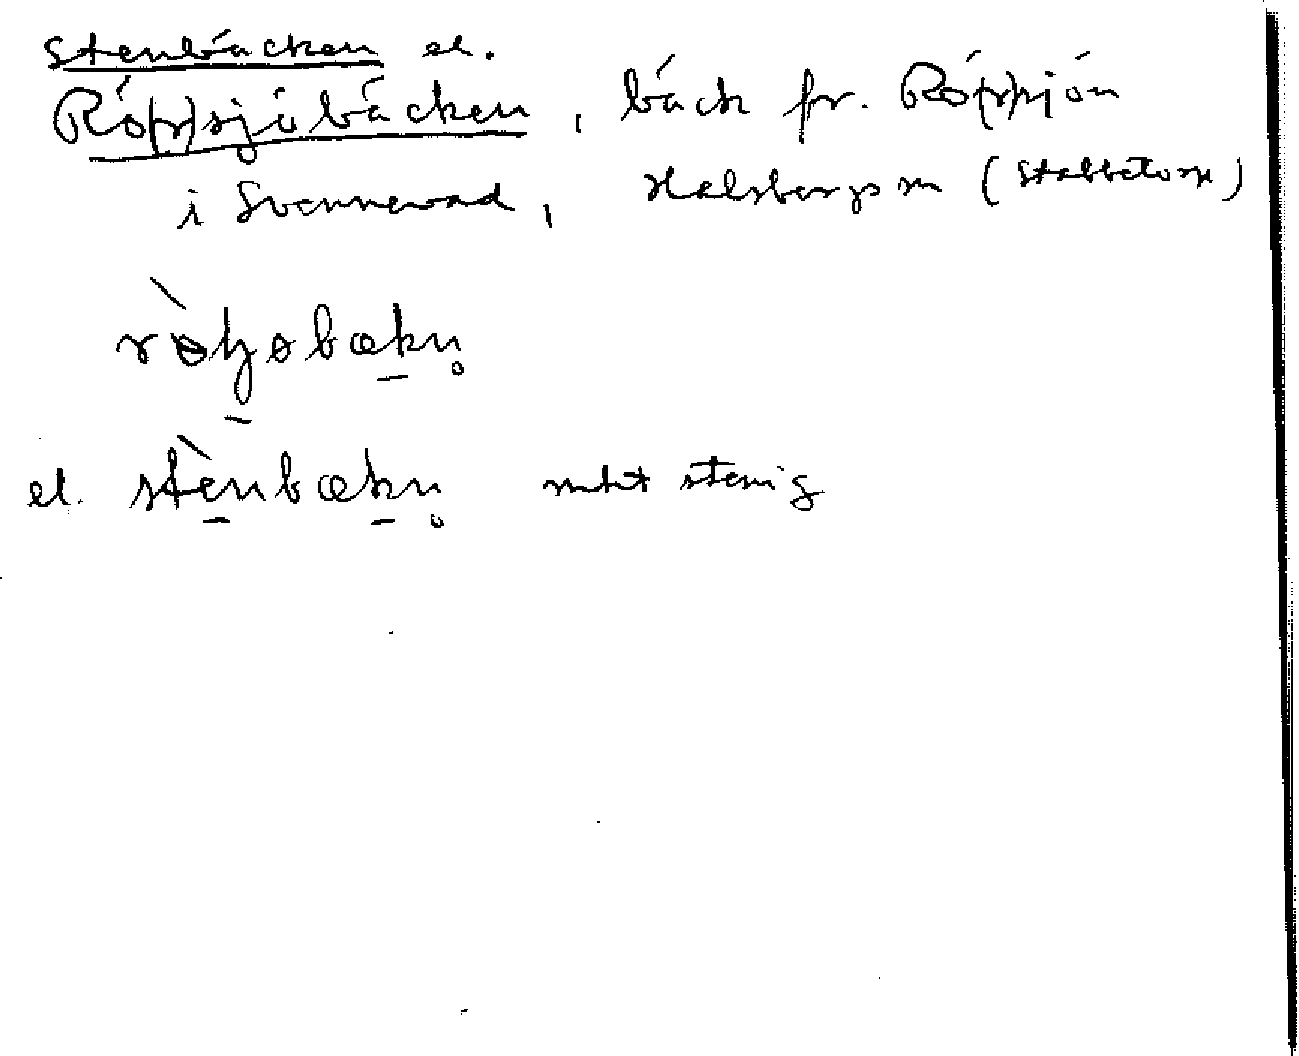 Stenbäcken el.
Rö(r)sjöbäcken, bäck fr. Rö(r)sjön
i Svennevad, Hallsbergs sn (Stabbetorp)
ròʃøbækn̥
el. stènbækn̥ mkt stenig